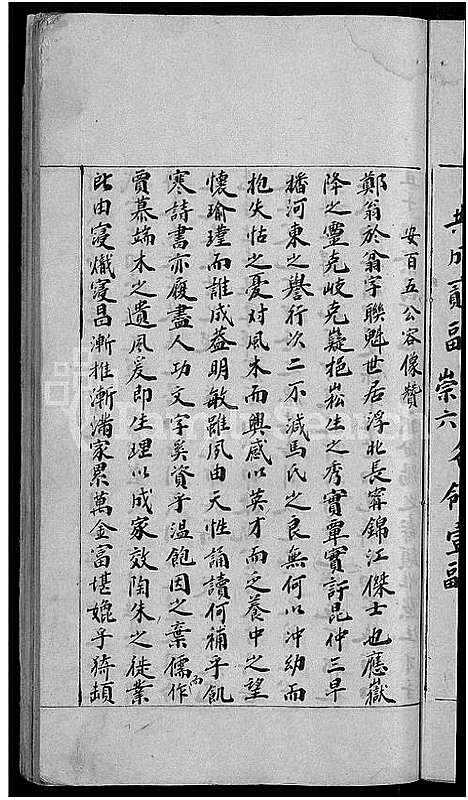 安百五公容像贊
鄭翁於翁字聯魁世居浮北長寗錦江傑士也應嶽
降之靈克岐克嶷挹崧生之秀實覃實訏昆仲三早
播河東之譽行次二不減馬氏之良無何以冲幼而
抱失怙之憂对風木而興感以英才而乏養中之望
懷瑜瑾而誰成益明敏雖夙由天性誦讀何補乎飢
寒詩書亦廢盡人功文字奚資乎温飽因之棄儒而作
賈慕端木之遺風爰即生理以成家效陶朱之徙業
此由寖熾寖昌漸推漸滿家累萬金富堪媲乎猗頓